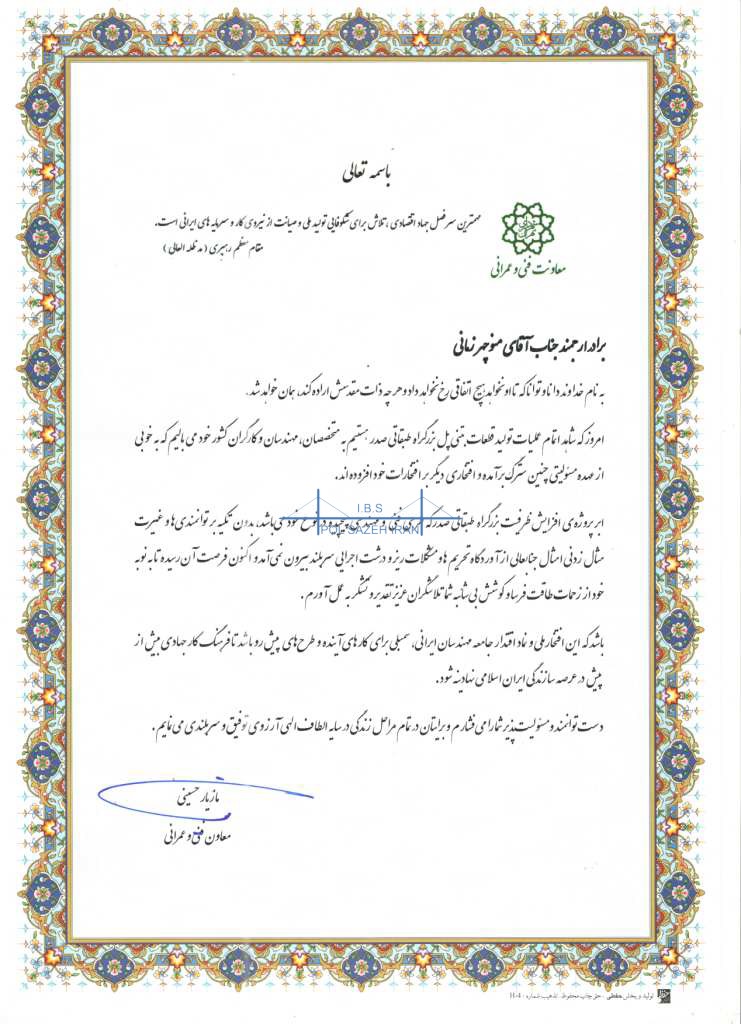 باسمه تعالی
مهمترین سرفصل جهاد اقتصادی، تلاش برای شکوفایی تولید ملی و صیانت از نیروی کار و سرمایه های ایرانی است.
مقام معظم رهبری ( مدظله العالی )
معاونت فنی و عمرانی
برادر ارجمند جناب آقای منوچهر زمانی
به نام خداوند دانا و توانا که تا او نخواهد هیچ اتفاقی رخ نخواهد داد و هر چه ذات مقدسش اراده کند، همان خواهد شد.
امروز که شاهد اتمام عملیات تولید قطعات بتنی پل بزرگراه طبقاتی صدر هستیم به متخصصان، مهندسان و کارگران کشور خود می بالیم که به خوبی
از عهده مسئولیتی چنین سترگ برآمده و افتخاری دیگر بر افتخارات خود افزوده اند.
ابر پروژه ی افزایش ظرفیت بزرگراه طبقاتی صدر که فنی و مهندسی پیچیده در نوع خود می باشد، بدون تکیه بر توانمندی ها و غیرت
مثال زدنی امثال جنابعالی از آوردگاه تحریم ها و مشکلات ریز و درشت اجرایی سربلند بیرون نمی آمد و اکنون فرصت آن رسیده تا به نوبه
خود از زحمات طاقت فرسا و کوشش بی شائبه شما تلاشگران عزیز تقدیر و تشکر به عمل آورم.
باشد که این افتخار ملی و نماد اقتدار جامعه مهندسان ایرانی، سمبلی برای کارهای آینده و طرح های پیش رو باشد تا فرهنگ کار جهادی بیش از
پیش در عرصه سازندگی ایران اسلامی نهادینه شود.
دست توانمند و مسئولیت پذیر شما را می فشارم و برایتان در تمام مراحل زندگی در سایه الطاف الهی آرزوی توفیق و سربلندی می نمایم.
مازیار حسینی
معاون فنی و عمرانی
I.B.S
POL SAZEH IRAN
تولید و پخش حفظی - حق چاپ محفوظ. تذهیب شماره